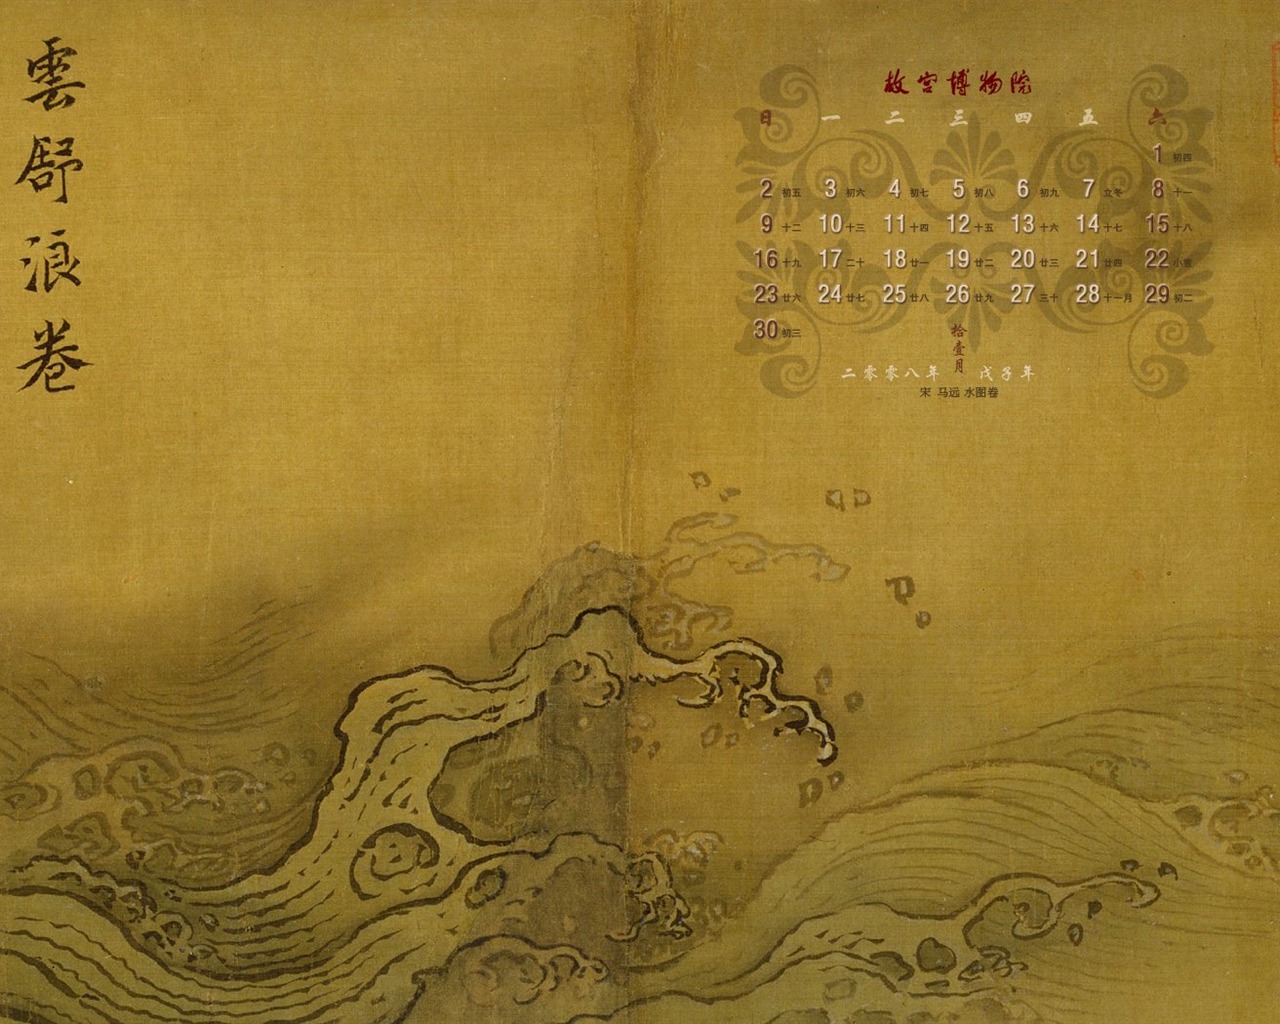 雲舒浪卷
故宫博物院
日 一 二 三 四 五 六
1 初四
2 初五 3 初六 4 初七 5 初八 6 初九 7 立冬 8 十一
9 十二 10 十三 11 十四 12 十五 13 十六 14 十七 15 十八
16 十九 17 二十 18 廿一 19 廿二 20 廿三 21 廿四 22 小雪
23 廿六 24 廿七 25 廿八 26 廿九 27 三十 28 十一月 29 初二
30 初三
拾壹月
二零零八年 戊子年
宋 马远 水图卷